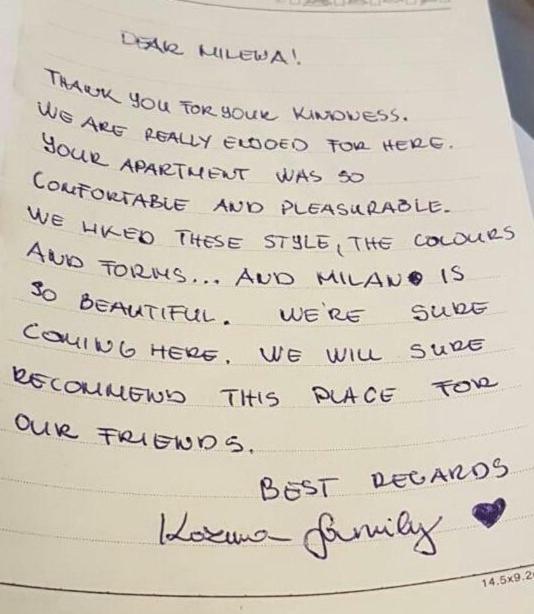 DEAR MILEWA!
THANK YOU FOR YOUR KINDNESS.
WE ARE REALLY ENJOED FOR HERE.
YOUR APARTMENT WAS SO
COMFORTABLE AND PLEASURABLE.
WE LIKED THESE STYLE, THE COLOURS
AND FORMS... AND MILANO IS
SO BEAUTIFUL. WE'RE SURE
COMING HERE. WE WILL SURE
RECOMMEND THIS PLACE FOR
OUR FRIENDS.
BEST REGARDS
family
14.5x9.2